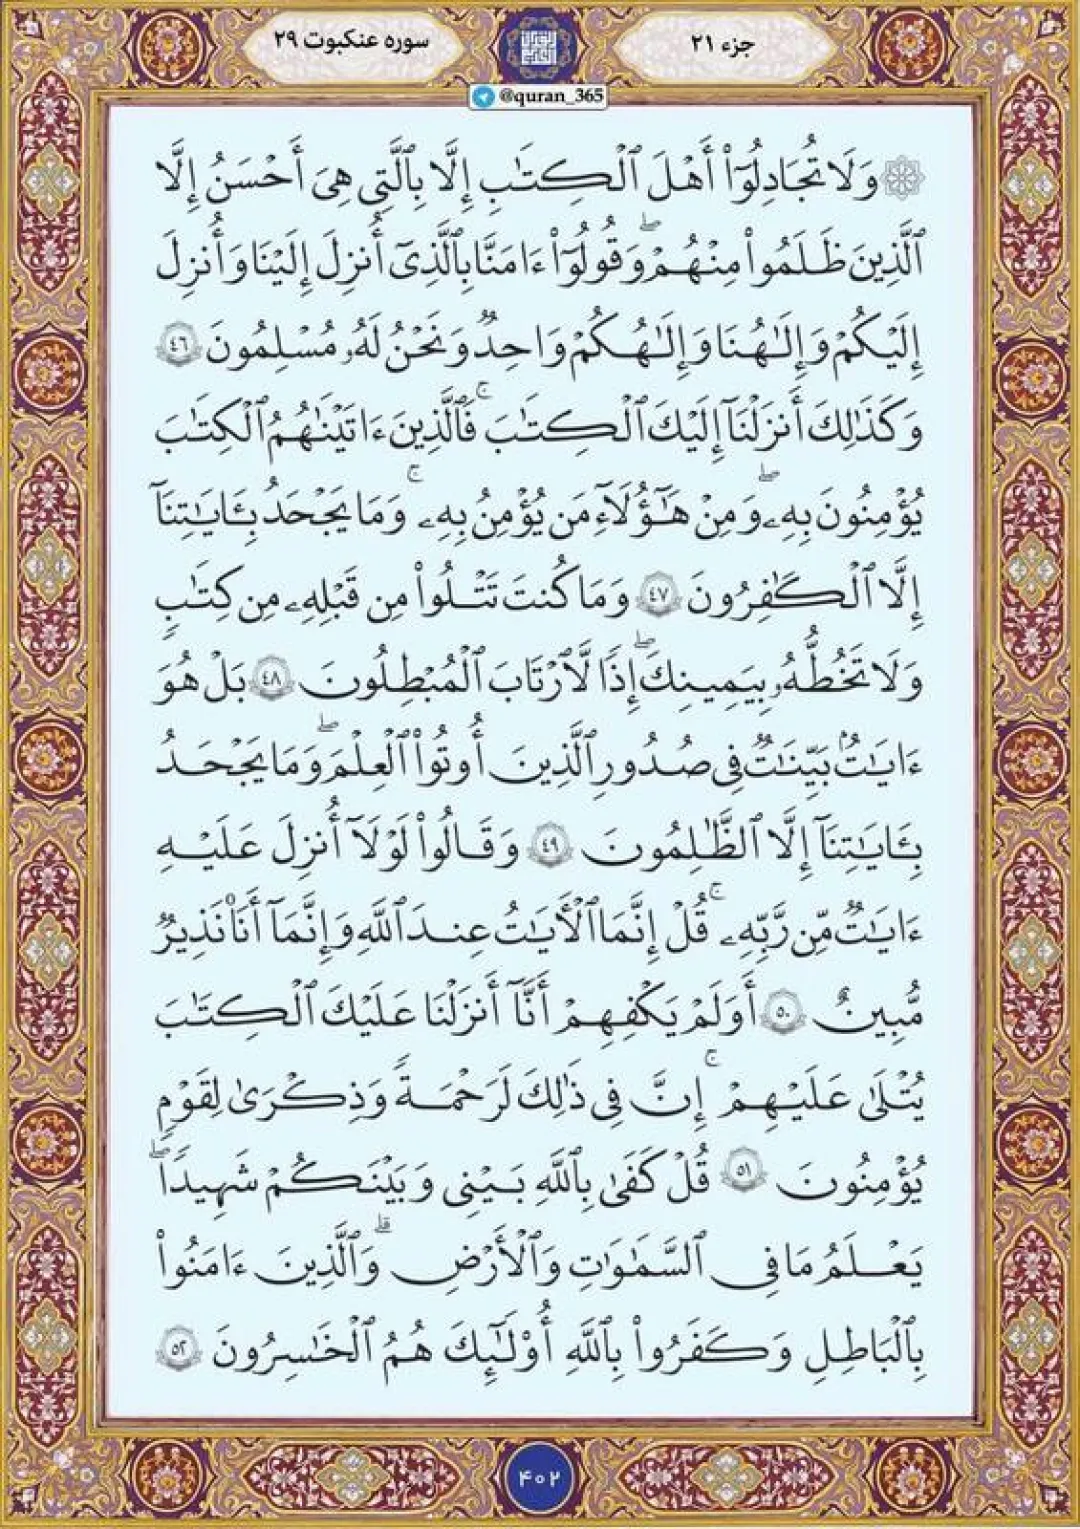 جزء ۲۱
سوره عنکبوت ۲۹
@quran_365
۞ وَلَا تُجَادِلُوٓا۟ أَهْلَ ٱلْكِتَٰبِ إِلَّا بِٱلَّتِى هِىَ أَحْسَنُ إِلَّا
ٱلَّذِينَ ظَلَمُوا۟ مِنْهُمْۖ وَقُولُوٓا۟ ءَامَنَّا بِٱلَّذِىٓ أُنزِلَ إِلَيْنَا وَأُنزِلَ
إِلَيْكُمْ وَإِلَٰهُنَا وَإِلَٰهُكُمْ وَاحِدٌ وَنَحْنُ لَهُۥ مُسْلِمُونَ ٤٦
وَكَذَٰلِكَ أَنزَلْنَآ إِلَيْكَ ٱلْكِتَٰبَۚ فَٱلَّذِينَ ءَاتَيْنَٰهُمُ ٱلْكِتَٰبَ
يُؤْمِنُونَ بِهِۦۖ وَمِنْ هَٰٓؤُلَآءِ مَن يُؤْمِنُ بِهِۦۚ وَمَا يَجْحَدُ بِـَٔايَٰتِنَآ
إِلَّا ٱلْكَٰفِرُونَ ٤٧ وَمَا كُنتَ تَتْلُوا۟ مِن قَبْلِهِۦ مِن كِتَٰبٍ
وَلَا تَخُطُّهُۥ بِيَمِينِكَۖ إِذًا لَّٱرْتَابَ ٱلْمُبْطِلُونَ ٤٨ بَلْ هُوَ
ءَايَٰتٌۢ بَيِّنَٰتٌ فِى صُدُورِ ٱلَّذِينَ أُوتُوا۟ ٱلْعِلْمَۖ وَمَا يَجْحَدُ
بِـَٔايَٰتِنَآ إِلَّا ٱلظَّٰلِمُونَ ٤٩ وَقَالُوا۟ لَوْلَآ أُنزِلَ عَلَيْهِ
ءَايَٰتٌ مِّن رَّبِّهِۦۚ قُلْ إِنَّمَا ٱلْـَٔايَٰتُ عِندَ ٱللَّهِ وَإِنَّمَآ أَنَا۠ نَذِيرٌ
مُّبِينٌ ٥٠ أَوَلَمْ يَكْفِهِمْ أَنَّآ أَنزَلْنَا عَلَيْكَ ٱلْكِتَٰبَ
يُتْلَىٰ عَلَيْهِمْۚ إِنَّ فِى ذَٰلِكَ لَرَحْمَةً وَذِكْرَىٰ لِقَوْمٍ
يُؤْمِنُونَ ٥١ قُلْ كَفَىٰ بِٱللَّهِ بَيْنِى وَبَيْنَكُمْ شَهِيدًاۖ
يَعْلَمُ مَا فِى ٱلسَّمَٰوَٰتِ وَٱلْأَرْضِۗ وَٱلَّذِينَ ءَامَنُوا۟
بِٱلْبَاطِلِ وَكَفَرُوا۟ بِٱللَّهِ أُو۟لَٰٓئِكَ هُمُ ٱلْخَٰسِرُونَ ٥٢
۴۰۲